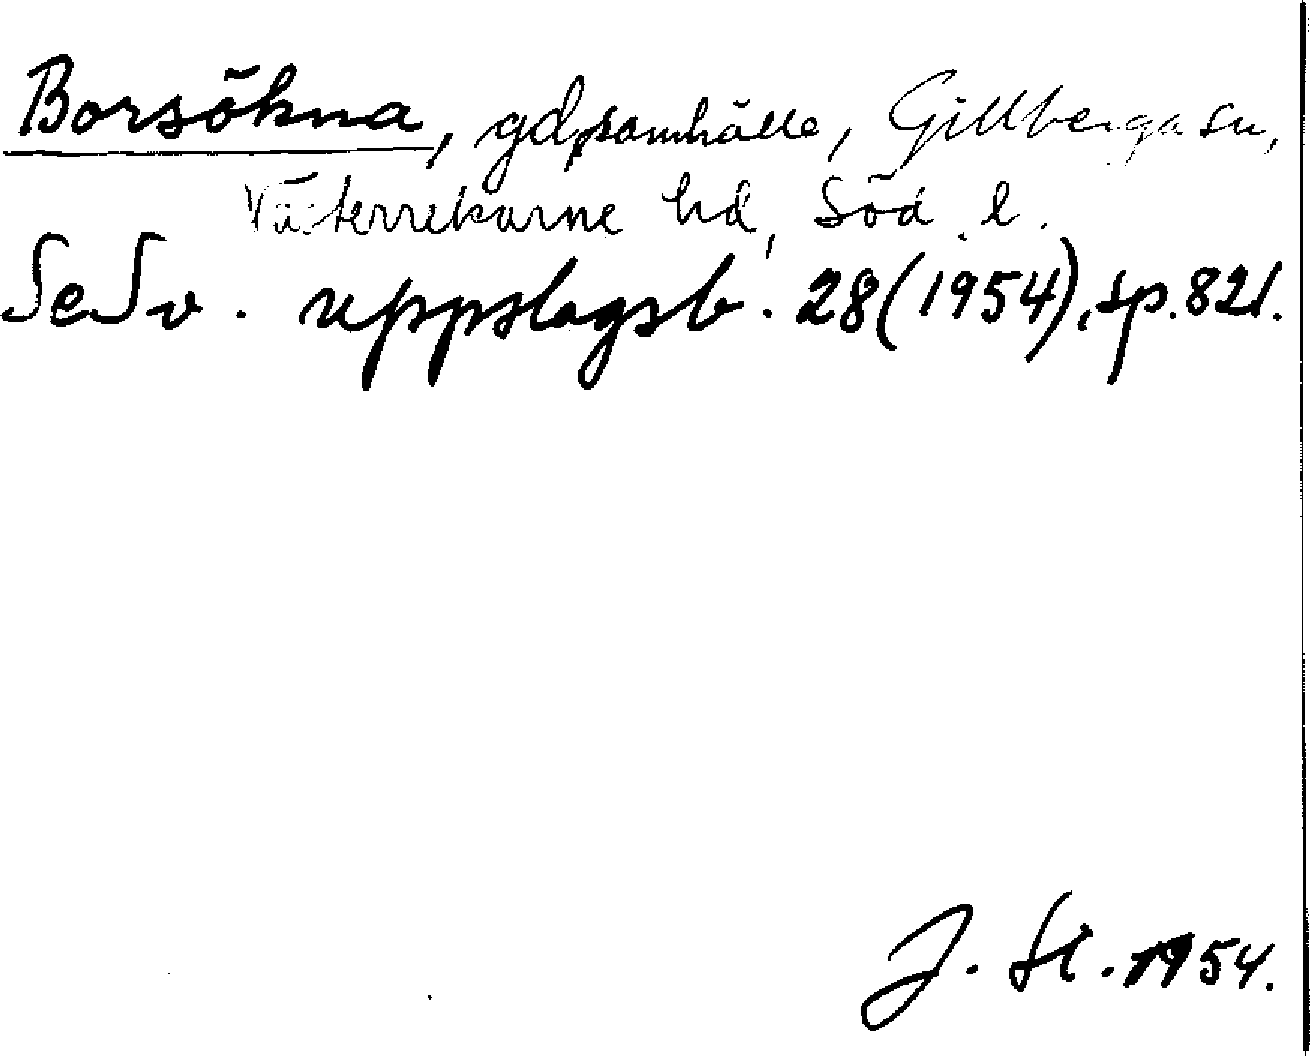 Borsökna, gd, samhälle, Gillberga sn,
Västerrekarne hd, Söd. l.
Se Sv. uppslagsb. 28 (1954), sp. 821.
J. St. 1954.